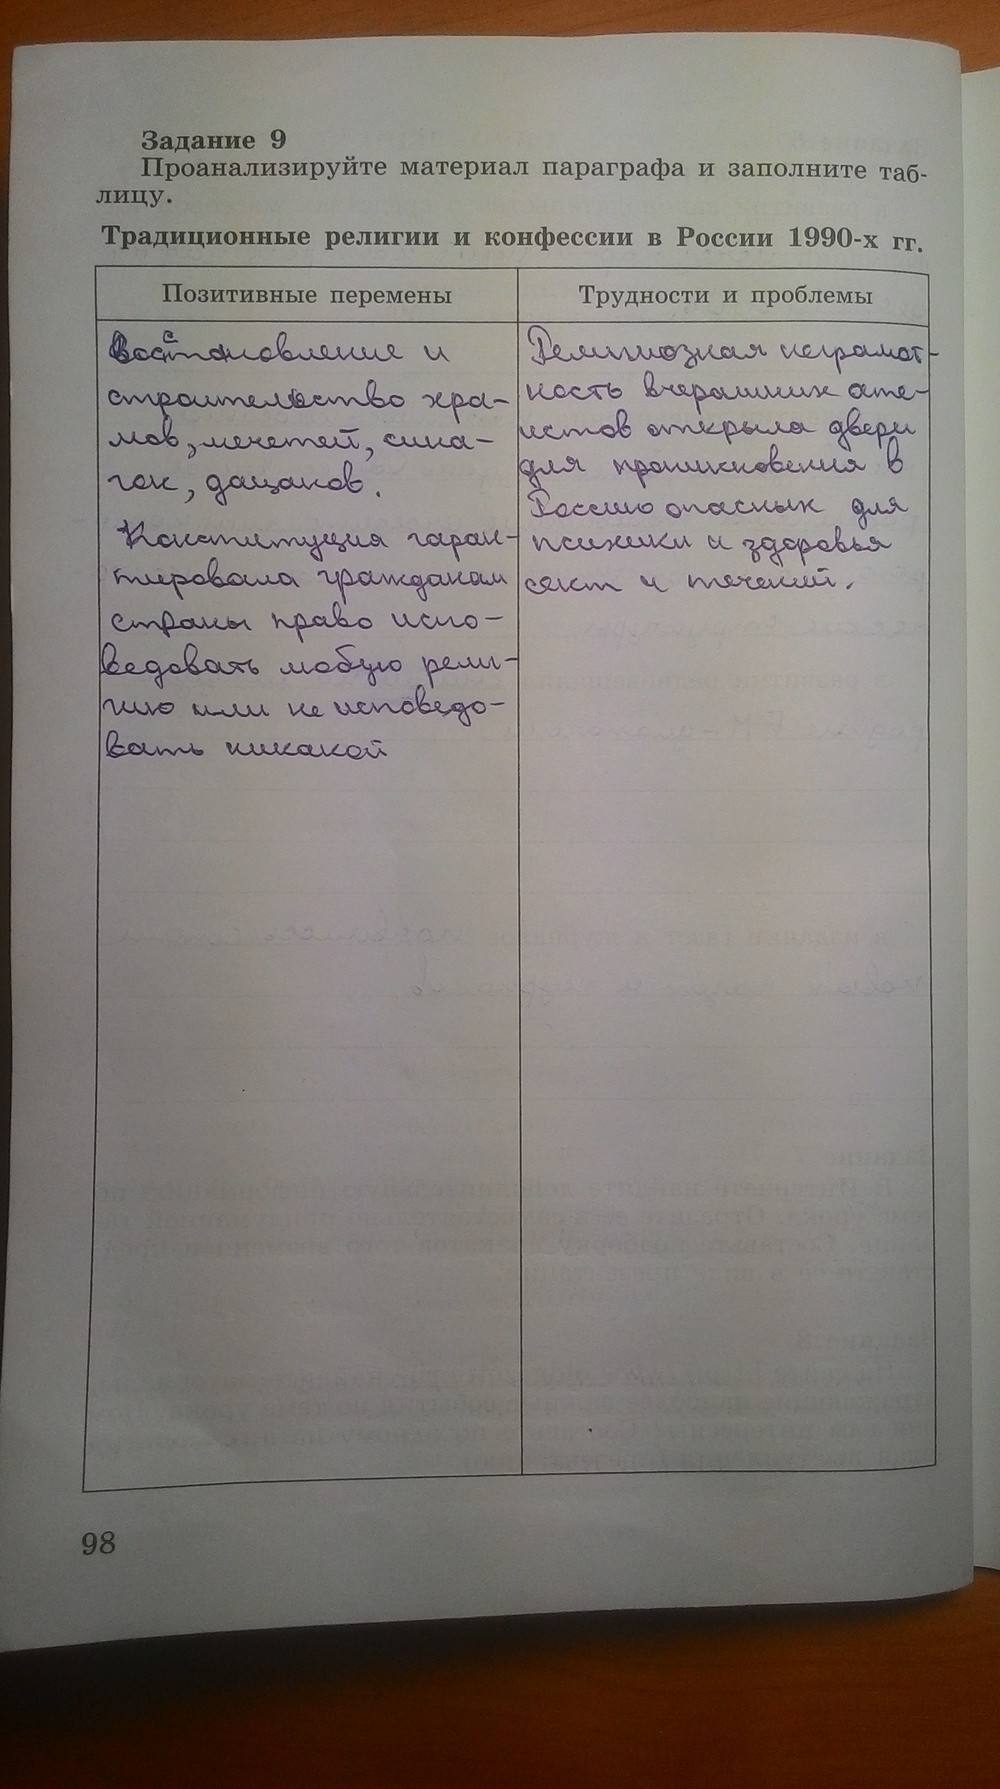 Задание 9
Проанализируйте материал параграфа и заполните таб-
лицу.
Традиционные религии и конфессии в России 1990-х гг.
Позитивные перемены
Восстановление и
строительство хра-
мов, мечетей, сина-
гог, дацанов.
Конституция гаран-
тировала гражданам
страны право испо-
ведовать любую рели-
гию или не исповедо-
вать никакой
Трудности и проблемы
Религиозная неграмот-
ность вчерашних ате-
истов открыла двери
для проникновения в
Россию опасных для
психики и здоровья
сект и течений.
98